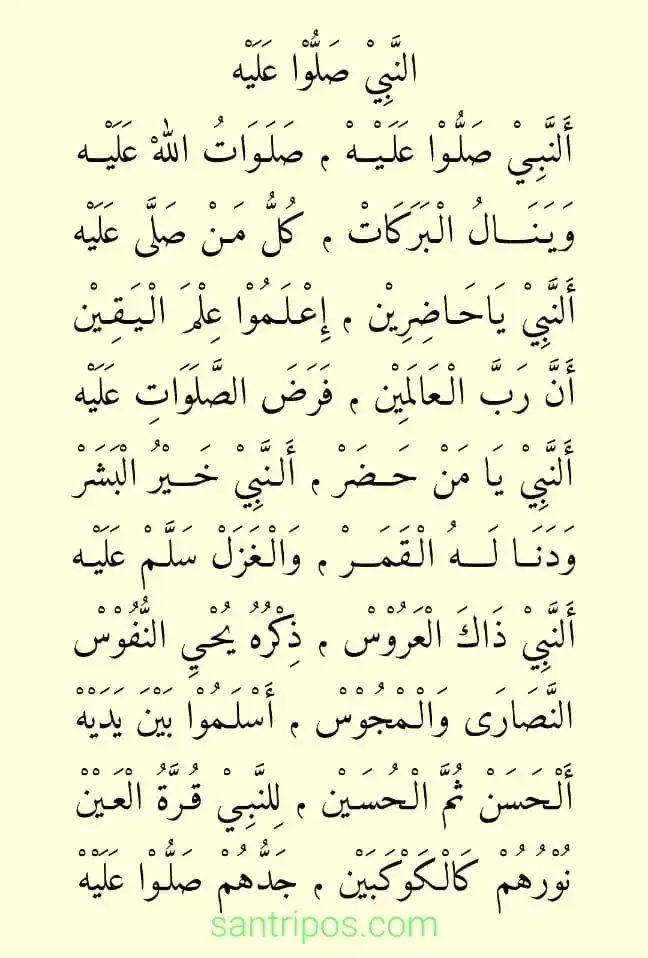 النَّبِيْ صَلُّوْا عَلَيْه
أَلنَّبِيْ صَلُّوْا عَلَيْهْ ، صَلَوَاتُ اللهْ عَلَيْه
وَيَنَالُ الْبَرَكَاتْ ، كُلُّ مَنْ صَلَّى عَلَيْه
أَلنَّبِيْ يَاحَاضِرِيْن ، إِعْلَمُوْا عِلْمَ الْيَقِيْن
أَنَّ رَبَّ الْعَالَمِيْن ، فَرَضَ الصَّلَوَاتِ عَلَيْه
أَلنَّبِيْ يَا مَنْ حَضَرْ ، أَلنَّبِيْ خَيْرُ الْبَشَرْ
وَدَنَا لَهُ الْقَمَرْ ، وَالْغَزَلْ سَلَّمْ عَلَيْه
أَلنَّبِيْ ذَاكَ الْعَرُوْسْ ، ذِكْرُهُ يُحْيِ النُّفُوْسْ
النَّصَارَى وَالْمْجُوْسْ ، أَسْلَمُوْا بَيْنَ يَدَيْهْ
أَلْحَسَنْ ثُمَّ الْحُسَيْن ، لِلنَّبِيْ قُرَّةُ الْعَيْنْ
نُوْرُهُمْ كَالْكَوْكَبَيْن ، جَدُّهُمْ صَلُّوْا عَلَيْهْ
santripos.com